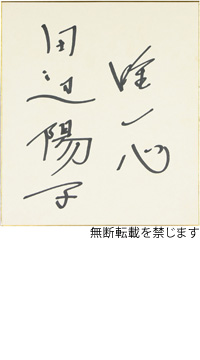 唯一心
田辺陽子
無断転載を禁じます